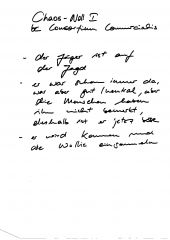 Chaos-Null I
Consortium Commercialis
- der Jäger ist auf
der Jagd
- er war schon immer da,
war aber gut / neutral, aber
die Menschen haben
ihn nicht bemerkt,
deshalb ist er jetzt böse
- er wird kommen und
die Wölfe einsammeln